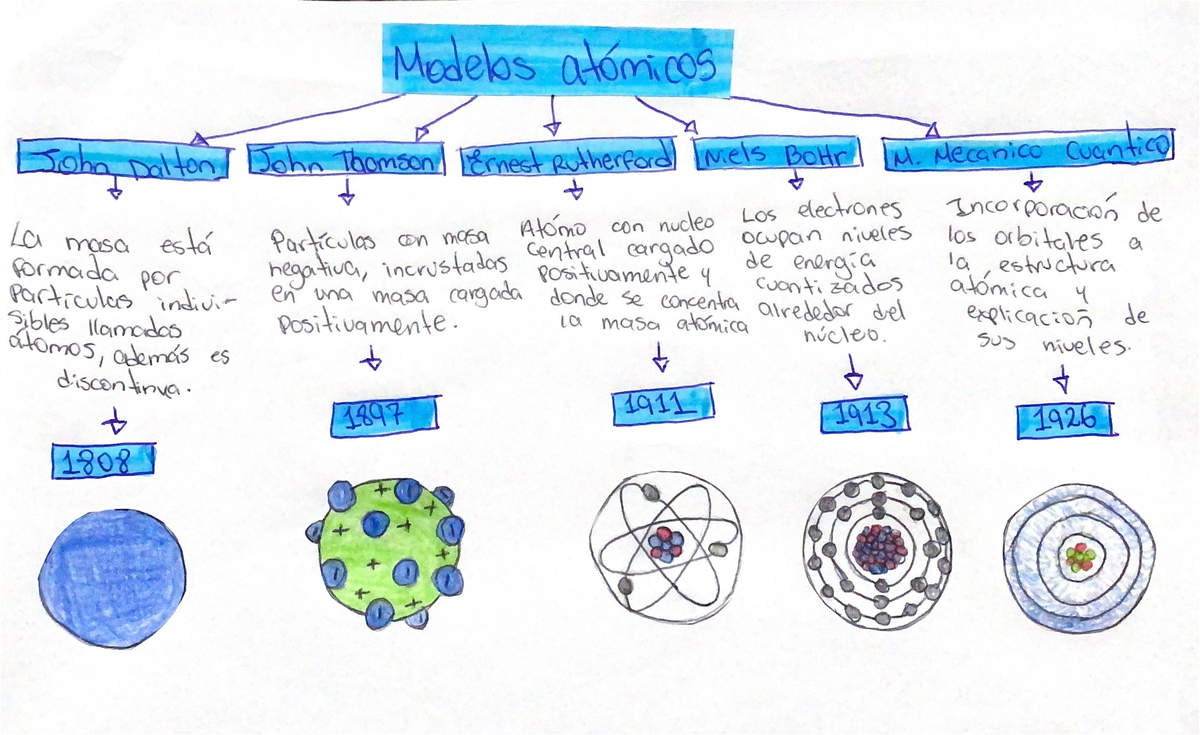 Modelos atómicos
John Dalton
La masa está
formada por
partículas indivi-
sibles llamadas
átomos, además es
discontinua.
1808
John Thomson
Partículas con masa
negativa, incrustadas
en una masa cargada
positivamente.
1897
+
+
+
+
+
+
+
Ernest Rutherford
Atómo con nucleo
central cargado
positivamente y
donde se concentra
la masa atómica
1911
Niels Bohr
Los electrones
ocupan niveles
de energía
cuantizados
alrededor del
núcleo.
1913
M. Mecanico Cuantico
Incorporación de
los orbitales a
la estructura
atómica y
explicación de
sus niveles.
1926